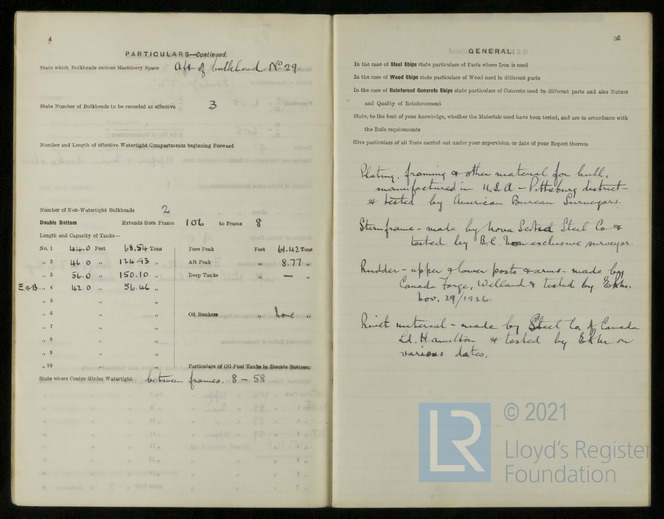 4
PARTICULARS—Continued.
State which Bulkheads enclose Machinery Space Aft of bulkhead No 29
State Number of Bulkheads to be recorded as effective 3
Number and Length of effective Watertight Compartments beginning Forward
Number of Non-Watertight Bulkheads 2
Double Bottom Extends from Frame 106 to Frame 8
Length and Capacity of Tanks—
No. 1 44.0 Feet 68.54 Tons Fore Peak Feet 61.42 Tons
„ 2 46.0 „ 124.93 „ Aft Peak „ 8.77 „
„ 3 56.0 „ 150.10 „ Deep Tanks „ — „
E&B „ 4 42.0 „ 56.46 „
„ 5 „
„ 6 „ Oil Bunkers „ None „
„ 7 „
„ 8 „
„ 9 „
„ 10 Particulars of Oil Fuel Tanks in Double Bottom
State where Center Girder Watertight between frames 8 – 58
GENERAL:
In the case of Steel Ships state particulars of Parts where Iron is used
In the case of Wood Ships state particulars of Wood used in different parts
In the case of Reinforced Concrete Ships state particulars of Concrete used in different parts and also Nature
and Quality of Reinforcement
State, to the best of your knowledge, whether the Materials used have been tested, and are in accordance
with the Rule requirements
Give particulars of all Tests carried out under your supervision or date of your Report thereon
Plating, framing & other material for hull,
manufactured in U.S.A – Pittsburg district
& tested by American Bureau Surveyors.
Sternframe – made by Nova Scotia Steel Co &
tested by B.C. Non-exclusive surveyor.
Rudder – upper & lower posts & arms – made by
Canada Forge, Welland & tested by
Nov. 29/1926
Rivet material – made by Steel Co. of Canada
Ld. Hamilton & tested by on
various dates.
LR © 2021
Lloyd's Register
Foundation